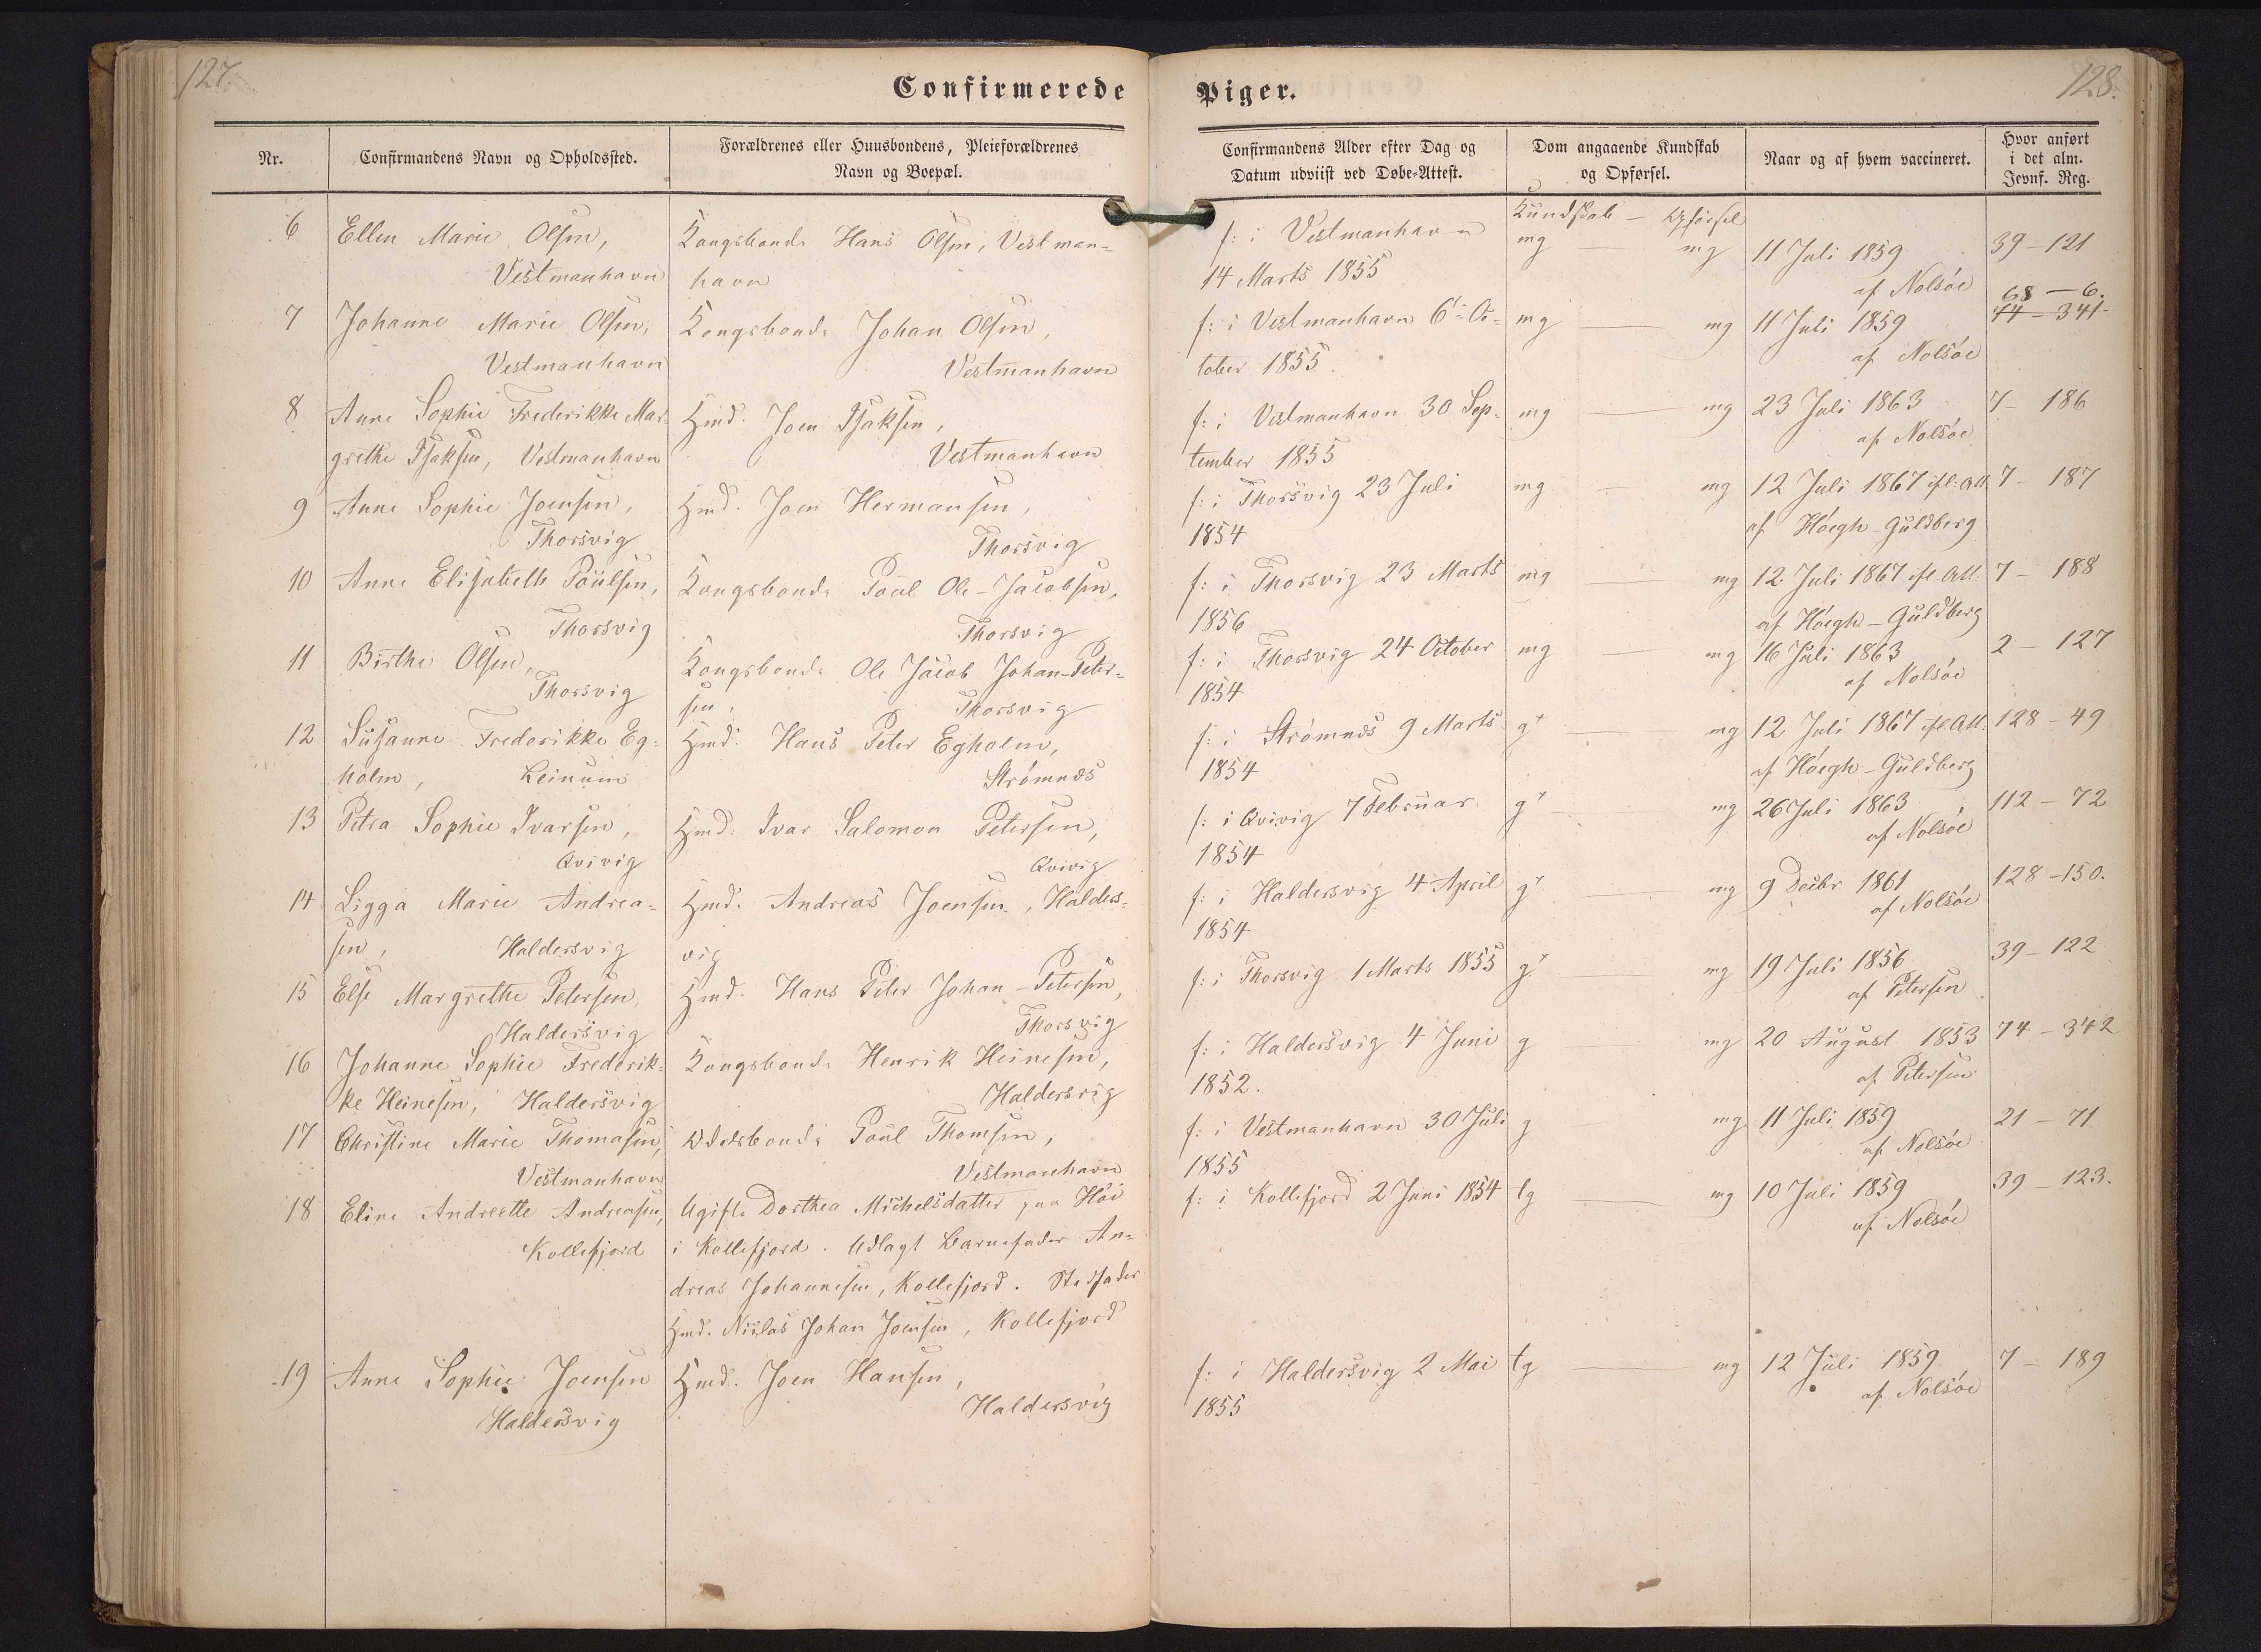 127.
Confirmerede
Nr.
Confirmandens Navn og Opholdssted.
Forældrenes eller Huusbondens, Pleieforældrenes
Navn og Boepæl.
6 Ellen Marie Olsen, Kongsbonde Hans Olsen, Vestman-
Vestmanhavn havn
7 Johanne Marie Olsen, Kongsbonde Johan Olsen,
Vestmanhavn Vestmanhavn
8 Anne Sophie Frederikke Mar- Hmd. Joen Isaksen,
grethe Isaksen, Vestmanhavn Vestmanhavn
9 Anne Sophie Joensen, Hmd. Joen Hermansen,
Thorsvig Thorsvig
10 Anne Elisabeth Poulsen, Kongsbonde Poul Ole-Jacobsen,
Thorsvig Thorsvig
11 Birthe Olsen, Kongsbonde Ole Jacob Johan-Peter-
Thorsvig sen, Thorsvig
12 Susanne Frederikke Eg- Hmd. Hans Peter Egholm,
holm, Leinum Strømnæs
13 Petra Sophie Ivarsen, Hmd. Ivar Salomon Petersen,
Qvivig Qvivig
14 Sigga Marie Andrea- Hmd. Andreas Joensen, Halders-
sen, Haldersvig vig
15 Else Margrethe Petersen, Hmd. Hans Peter Johan-Petersen,
Haldersvig Thorsvig
16 Johanne Sophie Frederik- Kongsbonde Henrik Heinesen,
ke Heinesen, Haldersvig Haldersvig
17 Christine Marie Thomasen, Odelsbonde Poul Thomsen,
Vestmanhavn Vestmanhavn
18 Eline Andreette Andreasen, Ugifte Dorthea Michelsdatter paa Höi
Kollefjord i Kollefjord. Udlagt Barnefader An-
dreas Johannesen, Kollefjord. Stedfader
Hmd. Niclas Johan Joensen, Kollefjord
19 Anne Sophie Joensen Hmd. Joen Hansen,
Haldersvig Haldersvig
128.
Piger.
Confirmandens Alder efter Dag og
Datum udviist ved Døbe-Attest.
Dom angaaende Kundskab
og Opførsel.
Naar og af hvem vaccineret.
Hvor anført
i det alm.
Jevnf. Reg.
Kundskab — Opførsel
f: i Vestmanhavn mg — mg 11 Juli 1859 39 - 121
14 Marts 1855 af Nolsöe
68 - 6.
f: i Vestmanhavn 6te Oc- mg — mg 11 Juli 1859 74 - 341
tober 1855. af Nolsöe
f: i Vestmanhavn 30 Sep- mg — mg 23 Juli 1863 7 - 186
tember 1855 af Nolsöe
f: i Thorsvig 23 Juli mg — mg 12 Juli 1867 ifl. Att. 7 - 187
1854 af Höegh-Guldberg
f: i Thorsvig 23 Marts mg — mg 12 Juli 1867 ifl. Att. 7 - 188
1856 af Höegh-Guldberg
f: i Thorsvig 24 October mg — mg 16 Juli 1863 2 - 127
1854 af Nolsöe
f: i Strömnæs 9 Marts g+ — mg 12 Juli 1867 ifl. Att. 128 - 49
1854 af Höegh-Guldberg
f: i Qvivig 7 Februar g+ — mg 26 Juli 1863 112 - 72
1854 af Nolsöe
f: i Haldersvig 4 April g+ — mg 9 Decbr 1861 128 - 150.
1854 af Nolsöe
f: i Thorsvig 1 Marts 1855 g+ — mg 19 Juli 1856 39 - 122
af Petersen
f: i Haldersvig 4 Juni g — mg 20 August 1853 74 - 342
1852. af Petersen
f: i Vestmanhavn 30 Juli g — mg 11 Juli 1859 21 - 71
1855 af Nolsöe
f: i Kollefjord 2 Juni 1854 tg — mg 10 Juli 1859 39 - 123.
af Nolsöe
f: i Haldersvig 2 Mai tg — mg 12 Juli 1859 7 - 189
1855 af Nolsöe